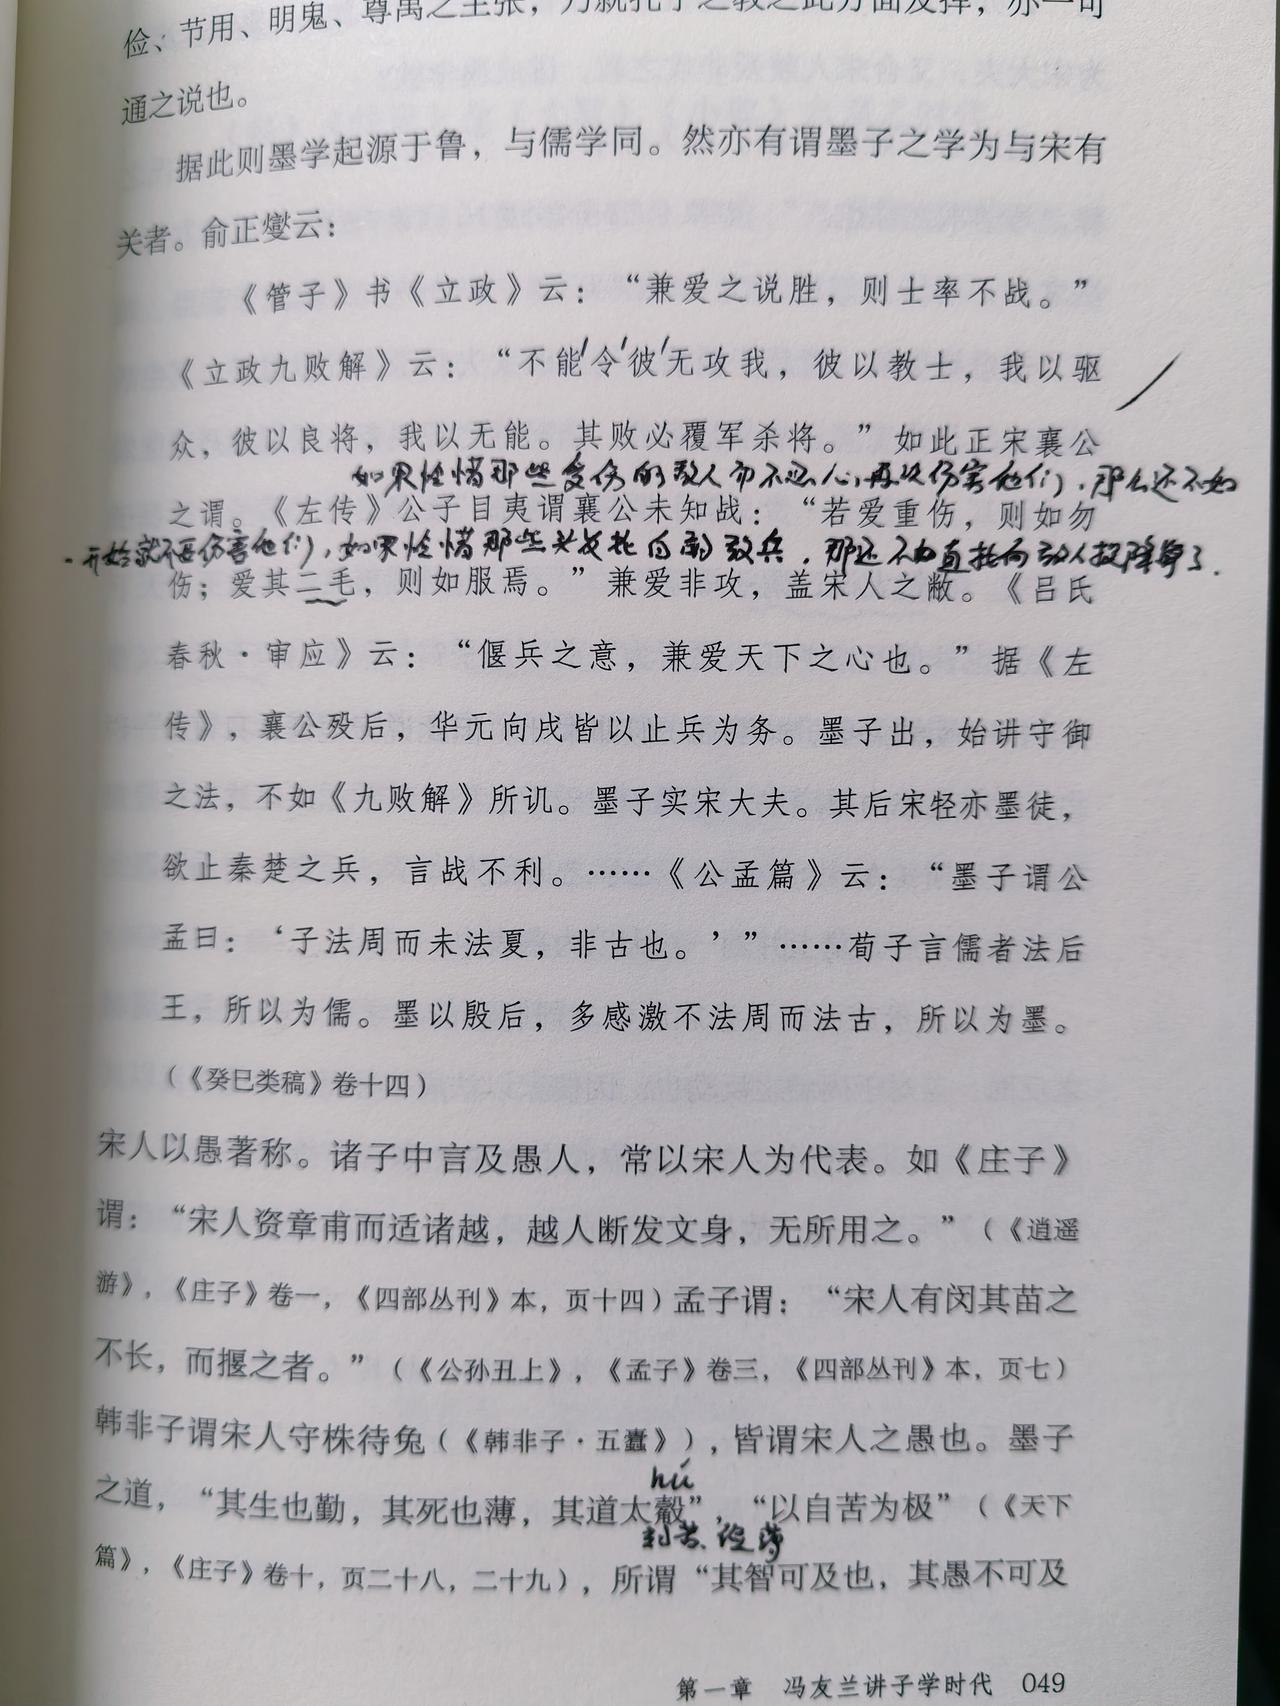 俭、节用、明鬼、尊禹之主张，乃就孔子之教之此方面发挥，亦一可
通之说也。
据此则墨学起源于鲁，与儒学同。然亦有谓墨子之学为与宋有
关者。俞正燮云：
《管子》书《立政》云：“兼爱之说胜，则士率不战。”
《立政九败解》云：“不能令彼无攻我，彼以教士，我以驱
众，彼以良将，我以无能。其败必覆军杀将。”如此正宋襄公
如果怜惜那些受伤的敌人而不忍心再次伤害他们，那么还不如
之谓。《左传》公子目夷谓襄公未知战：“若爱重伤，则如勿
一开始就不要伤害他们，如果怜惜那些头发花白的敌兵，那还不如直接向敌人投降算了.
伤；爱其二毛，则如服焉。”兼爱非攻，盖宋人之敝。《吕氏
春秋·审应》云：“偃兵之意，兼爱天下之心也。”据《左
传》，襄公殁后，华元向戌皆以止兵为务。墨子出，始讲守御
之法，不如《九败解》所讥。墨子实宋大夫。其后宋轻亦墨徒，
欲止秦楚之兵，言战不利。……《公孟篇》云：“墨子谓公
孟曰：‘子法周而未法夏，非古也。’”……荀子言儒者法后
王，所以为儒。墨以殷后，多感激不法周而法古，所以为墨。
（《癸巳类稿》卷十四）
宋人以愚著称。诸子中言及愚人，常以宋人为代表。如《庄子》
谓：“宋人资章甫而适诸越，越人断发文身，无所用之。”（《逍遥
游》，《庄子》卷一，《四部丛刊》本，页十四）孟子谓：“宋人有闵其苗之
不长，而揠之者。”（《公孙丑上》，《孟子》卷三，《四部丛刊》本，页七）
韩非子谓宋人守株待兔（《韩非子·五蠹》），皆谓宋人之愚也。墨子
hú
之道，“其生也勤，其死也薄，其道太觳”，“以自苦为极”（《天下
刻苦、俭薄
篇》，《庄子》卷十，页二十八，二十九），所谓“其智可及也，其愚不可及
第一章 冯友兰讲子学时代 049